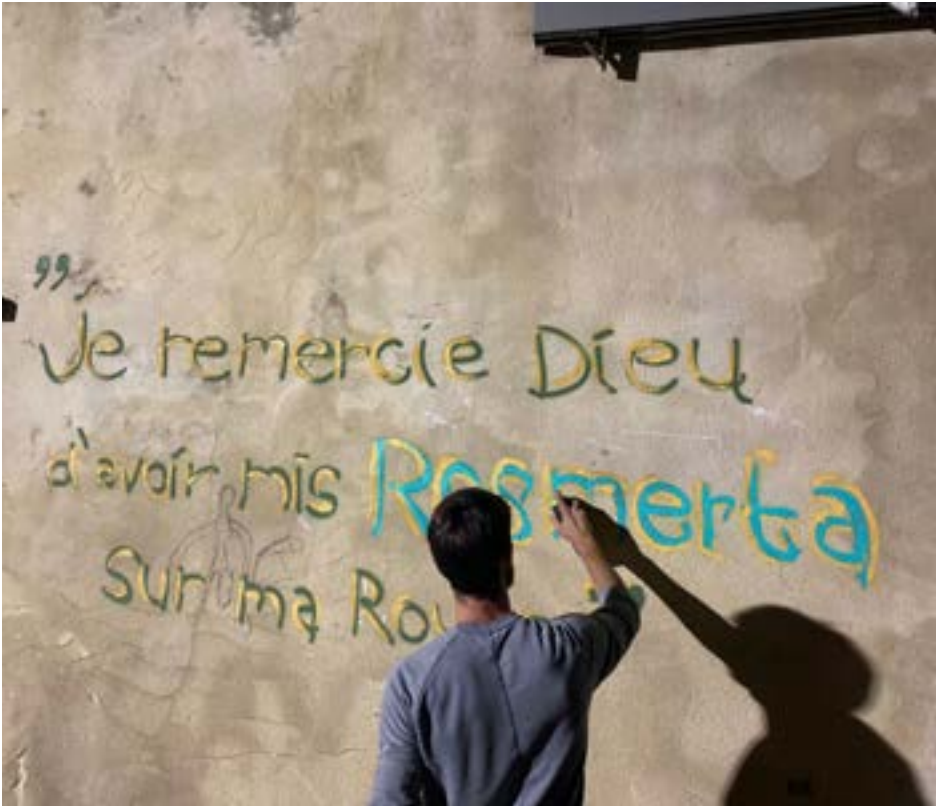 " Je remercie Dieu
d'avoir mis Rosmerta
sur ma